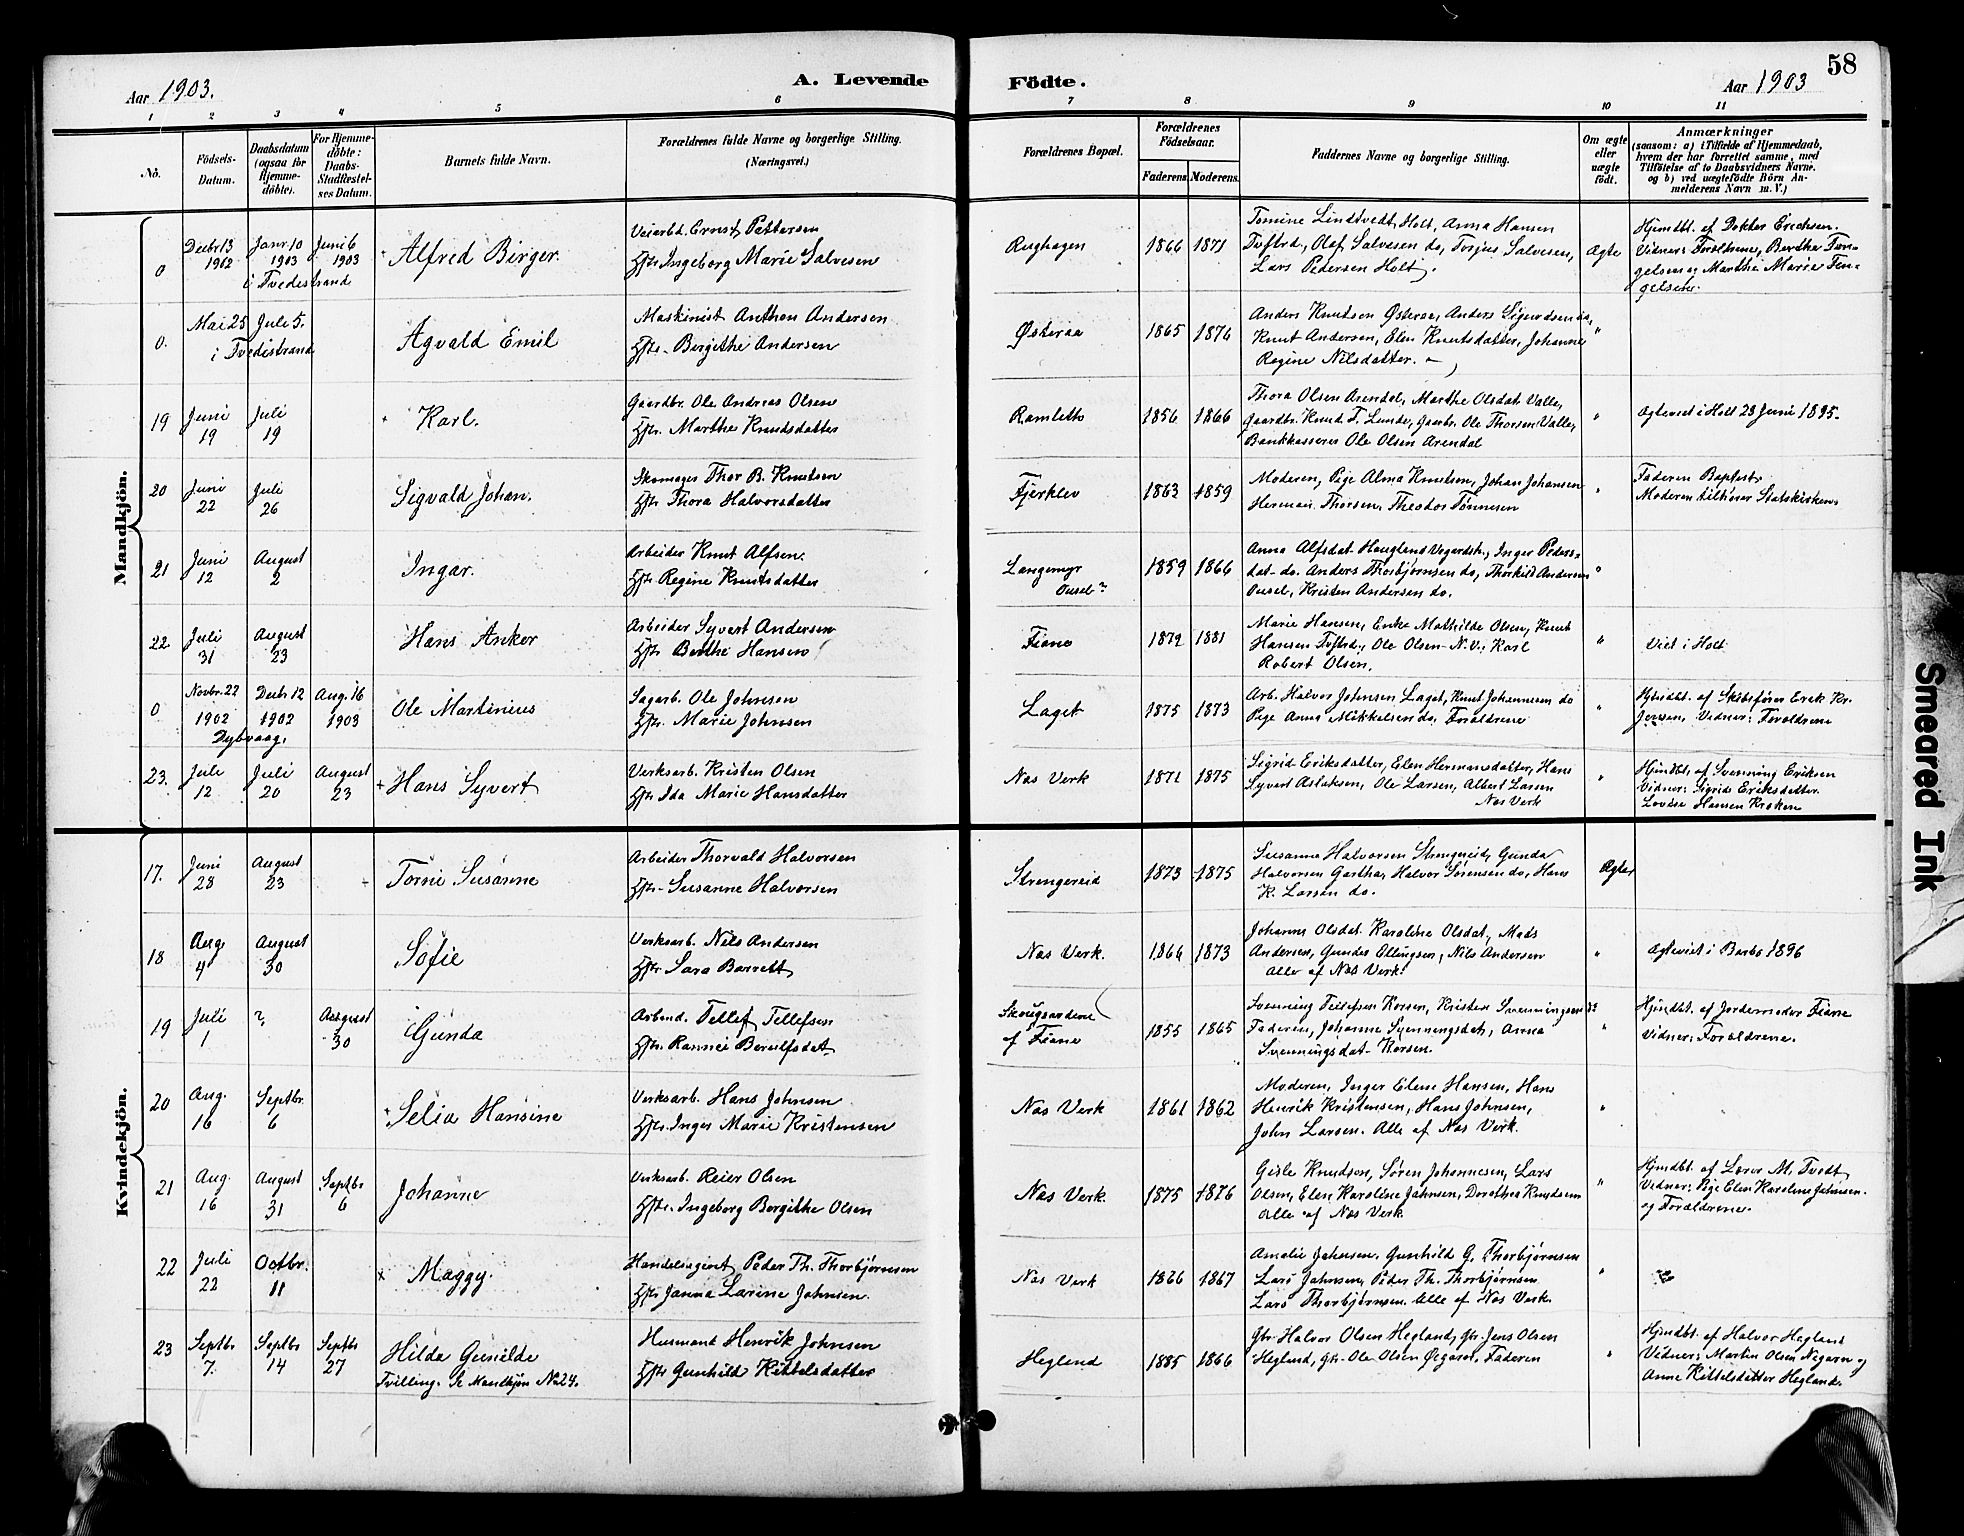 58
Aar 1903.
A. Levende
Födte.
Aar 1903
1 2 3 4 5 6
7 8 9 10 11
No.
Födsels-
Datum.
Daabsdatum
(ogsaa for
Hjemme-
döbte).
For Hjemme-
döbte:
Daabs-
Stadfæstel-
ses Datum.
Barnets fulde Navn.
Forældrenes fulde Navne og borgerlige Stilling.
(Næringsvei.)
Forældrenes Bopæl.
Forældrenes
Födselsaar.
Faderens Moderens.
Faddernes Navne og borgerlige Stilling.
Om ægte
eller
uægte
födt.
Anmærkninger
(saasom: a) i Tilfælde af Hjemmedaab,
hvem der har forrettet samme, med
Tilföielse af to Daabsvidners Navne.
og b) ved uægtefödte Börn An-
melderens Navn m. V.)
Mandkjön.
0
Decbr 13
1902
Janr 10
1903
i Tvedestrand
Juni 6
1903
Alfred Birger.
Veiarbd. Ernst Pettersen
Hstr. Ingeborg Marie Salvesen
1866 1871
Tomine Lindtvedt, Holt, Anna Hansen
Toftrd, Olaf Salvesen do, Torjus Salvesen,
Lars Pedersen Holt.
Ægte
Hjmdbt. af Doktor Erichsen.
0.
Mai 25
Juli 5.
i Tvedestrand
Agvald Emil
Maskinist Anthon Andersen
Hstr. Birgithe Andersen
Østeraa
1865 1876
Anders Knutson Østeraa, Anders Sigurdsen do,
Knut Andersen, Elen Knutsdatter, Johanne
Regine Nilsdatter.
"
19
Juni
19
Juli
19
Karl.
Gaardbr. Ole Andreas Olsen
Hstr. Marthe Knudsdatter
Ramleth
1856 1866
Thora Olsen Arendal, Marthe Olsdat. Valle,
Gaardbr. Knud T. Lunde, Gaarbr. Ole Thorsen Valle,
Bankkasserer Ole Olsen Arendal
"
Ægteviet i Holt 28 Juni 1895.
20
Juni
22
Juli
26
Sigvald Johan.
Skomager Thor B. Knutsen
Hstr. Thora Halvorsdatter
Fjerklev
1863 1859
Moderen, Pige Alma Knutsen, Johan Johansen
Herman Thorsen, Theodor Tønnesen
"
Faderen Baptist,
Moderen tilhører Statskirken.
21
Juni
12
August
2
Ingar.
Arbeider Knut Alfsen.
Hstr. Regine Knutsdatter
Langemyr
1859 1866
Anna Alfsdat. Haugland Vegardsh., Inger Peders-
dat. do. Anders Thorbjørnsen do, Thorkild Andersen
Ousel, Kristen Andersen do.
"
22
Juli
31
August
23
Hans Anker
Arbeider Syvert Andersen
Hstr. Berthe Hansen
Fiane
1872 1881
Marie Hansen, Enke Mathilde Olsen, Knut
Hansen Toftrd., Ole Olsen N.V., Karl
Robert Olsen.
"
Viet i Holt
0
Novbr. 22
1902
Dybvaag.
Decbr 12
1902
Aug. 16
1903
Ole Martinius
Sagarb. Ole Johnsen
Hstr. Marie Johnsen
Laget
1875 1873
Arb. Halvor Johnsen Laget, Knut Johannesen do
Pige Anna Mikkelsen do, Forældrene
"
Hjmdbt. af Skibsfører Erik Kr.
Jensen, Vidner: Forældrene
23.
Juli
12
Juli
20
August
23
+ Hans Syvert
Verksarb. Kristen Olsen
Hstr. Ida Marie Hansdatter
Næs Verk
1871 1875
Sigrid Eriksdatter, Elen Hermansdatter, Hans
Syvert Aslaksen, Ole Larsen, Albert Larsen
Næs Verk
"
Hjmdbt. af Svenning Eriksen
Vidner: Sigrid Eriksdatter.
Lovise Hansen Kroken
Kvindekjön.
17.
Juni
28
August
23
Torni Susanne
Arbeider Thorvald Halvorsen
Hstr. Susanne Halvorsen
Strengereid
1873 1875
Susanne Halvorsen Strengereid, Gunda
Halvorsen Gartha, Halvor Sørensen do, Hans
K. Larsen do.
Ægte
18
Aug.
4
August
30
Sofie
Verksarb. Nils Andersen
Hstr. Sara Barrett
Næs Verk.
1866 1873
Johanne Olsdat. Karoline Olsdat, Mads
Andersen, Gunder Ellingsen, Nils Andersen
Alle af Næs Verk.
"
Ægteviet i Barbo 1896
19
Juli
1
?
August
30
Gunda
Arbeid. Tellef Tellefsen
Hstr. Rannei Berulfsdat
Skougsauderne
f Fiane
1855 1865
Svenning Tellefsen Korsen, Kristen Svenningsen do
Faderen, Johanne Svenningsdat, Anna
Svenningsdat. Korsen.
"
Hjmdbt. af Jordemoder Fiane
Vidner: Forældrene.
20
Aug.
16
Septbr.
6
Selia Hansine
Verksarb. Hans Johnsen
Hstr. Inger Marie Kristensen
Næs Verk
1861 1862
Moderen, Inger Elene Hansen, Hans
Henrik Kristensen, Hans Johnsen,
John Larsen. Alle af Næs Verk.
"
21
Aug.
16
August
31
Septbr
6
Johanne
Verksarb. Reier Olsen
Hstr. Ingeborg Bergithe Olsen
Næs Verk.
1875 1876
Gisle Knudson, Søren Johannesen, Lars
Olsen, Elen Karoline Johnsen, Dorothea Knudsen
Alle af Næs Verk.
"
Hjmdbt. af Lærer M. Tvedt
Vidner: Pige Elen Karoline Johnsen.
og Forældrene.
22
Juli
22
Octbr.
11
x Maggy.
Handelsagent Peder Th. Thorbjørnsen
Hstr Janna Larine Johnsen.
Næs Verk
1866 1867
Amalie Johnsen, Gunhild G. Thorbjørnsen
Lars Johnsen, Peder Th. Thorbjørnsen
Lars Thorbjørnsen. Alle af Næs Verk.
"
23
Septbr
7.
Septbr
14
Septbr
27
Hilda Gunilde
Tvilling. Se Mandkjøn No 24.
Husmand Henrik Johnsen
Hstr Gunhild Kittelsdatter
Heglend
1885 1866
Gbr. Halvor Olsen Hegland, Gbr. Jens Olsen
Hegland, Gbr. Ole Olsen Øygaret, Faderen
"
Hjmdbt. af Halvor Hegland
Vidner: Martin Olsen Nygarn og
Anne Kittelsdatter Hegland.
Smeared Ink